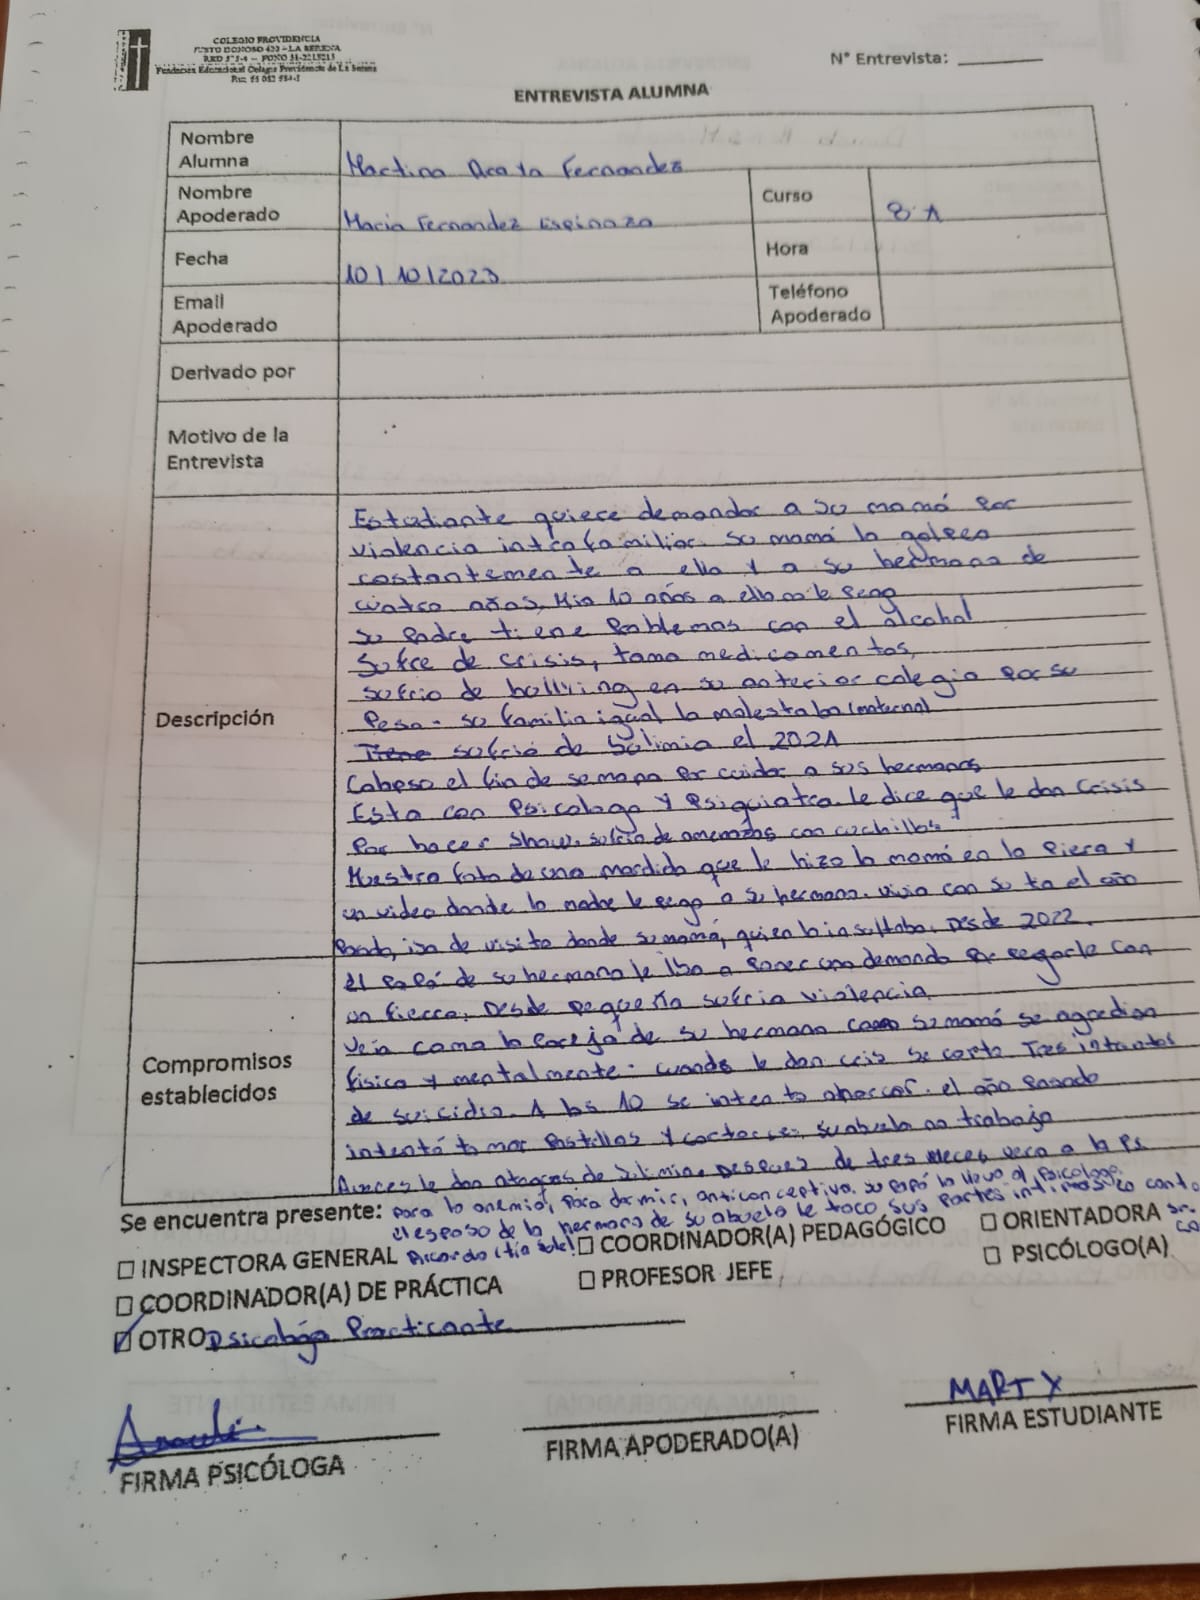 COLEGIO PROVIDENCIA
JUSTO DONOSO 420 - LA SERENA
Fundacion Educacional Colegio Providencia de La Serena
N° Entrevista:
ENTREVISTA ALUMNA
Nombre Alumna Martina Fernandez
Nombre Apoderado Maria Fernandez Espinoza Curso 8·A
Fecha 10/10/2023 Hora
Email Apoderado Teléfono Apoderado
Derivado por
Motivo de la Entrevista
Descripción
Estudiante quiere demandar a su mamá por
violencia intrafamiliar. su mamá la golpea
costantemente a ella y a su hermana de
cuatro años, 10 años a no le pega
su padre tiene problemas con el alcohol
Sufre de crisis, toma medicamentos,
sufrio de bullying en su anterior colegio por su
Peso - su familia igual la molestaba (materna)
Tiene sufrió de bulimia el 2021
el fin de semana por cuidar a sus hermanos
Esta con Psicologo y Psiquiatra. le dice que le dan crisis
Por hacer show. sufrio de amenazas con cuchillos
Muestra foto de una mordida que le hizo la mamá en la pierna y
un video donde la madre le pego a su hermana. vivia con su tia el año
Pasado, iba de visita donde su mamá, quien la insultaba. Desde 2022.
Compromisos establecidos
el papá de su hermano le iba a poner una demanda por pegarle con
un fierro. Desde pequeña sufria violencia
veia como la pareja de su hermana su mamá se agredian
fisica y mentalmente. cuando le dan se corta Tres intentos
de suicidio. A los 10 se intento ahorcar. el año pasado
intentó tomar Pastillas y cortarse, su abuela no trabaja
Aveces le dan ataques de bulimia. Despues de tres meces a la Ps.
Se encuentra presente: para la anemia, para dormir, anticonceptiva. su papá la llevo al psicologo.
el esposo de la hermana de su abuela le toco sus partes intimas
☐ INSPECTORA GENERAL Ricardo (tia ☐ COORDINADOR(A) PEDAGÓGICO ☐ ORIENTADORA
☐ COORDINADOR(A) DE PRÁCTICA ☐ PROFESOR JEFE ☐ PSICÓLOGO(A)
☑ OTRO Psicologa Practicante
MARTY
FIRMA PSICÓLOGA FIRMA APODERADO(A) FIRMA ESTUDIANTE